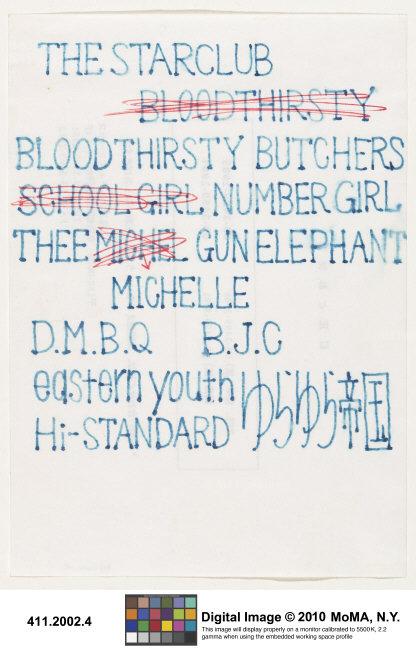 THE STARCLUB
BLOODTHIRSTY
BLOODTHIRSTY BUTCHERS
SCHOOL GIRL NUMBER GIRL
THEE MICHEL GUN ELEPHANT
MICHELLE
D.M.B.Q B.J.C
eastern youth ゆらゆら帝国
Hi-STANDARD
411.2002.4
Digital Image © 2010 MoMA, N.Y.
This image will display properly on a monitor calibrated to 5500K, 2.2
gamma when using the embedded working space profile